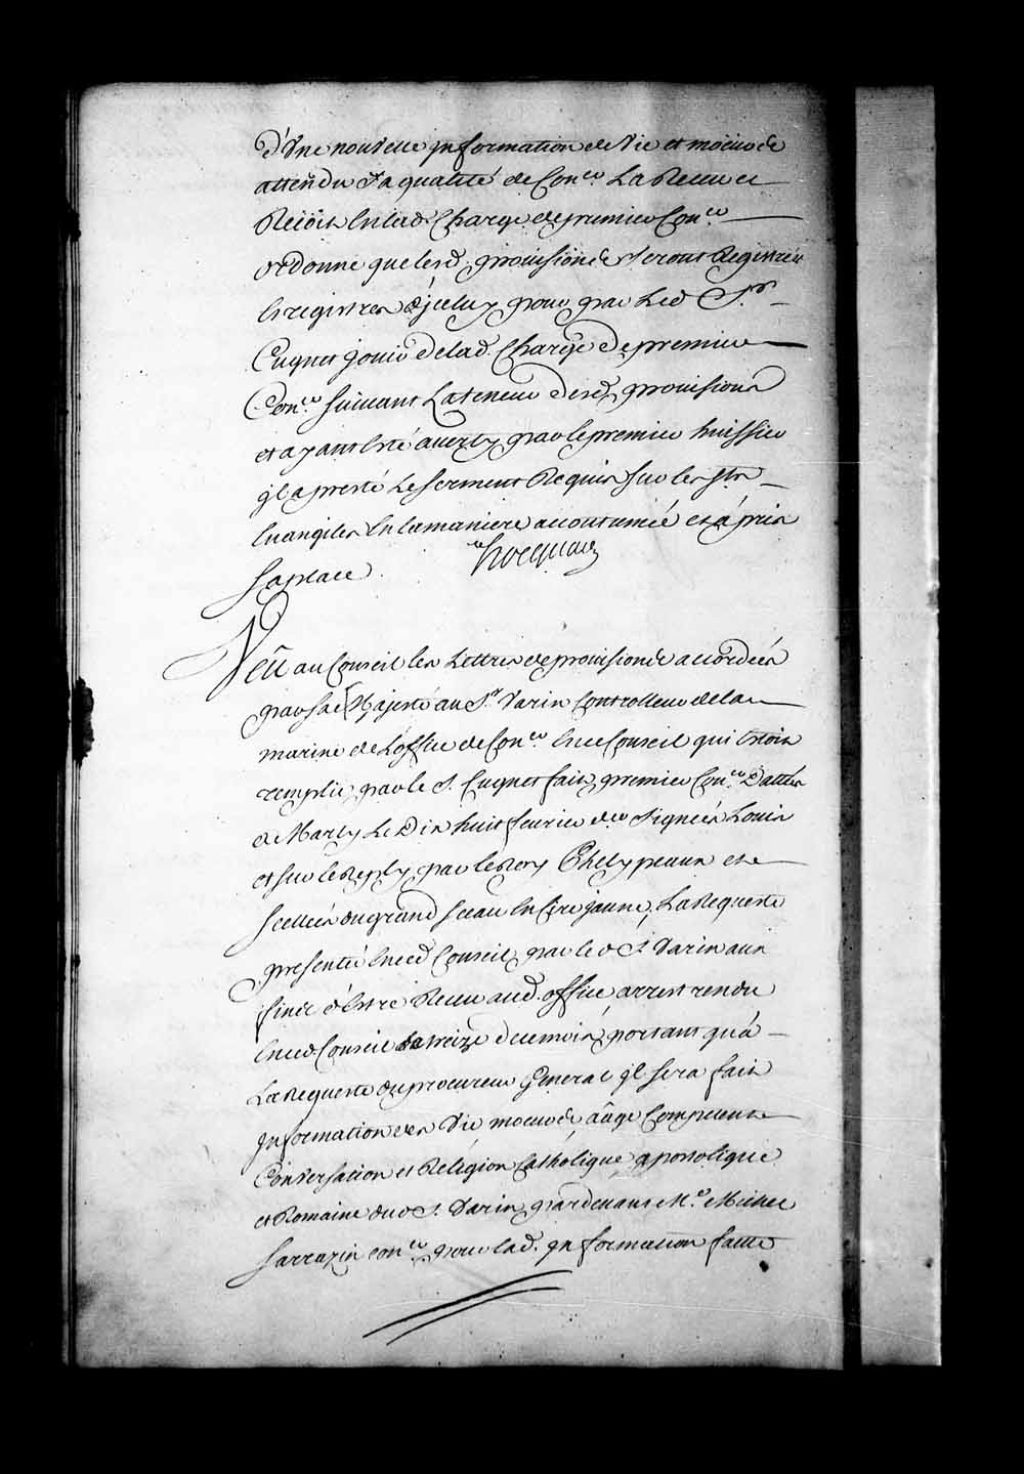 d'Une nouvelle jnformation de Vie et moeurs
attendu Sa qualité de Con.er La Receu et
Reçoit en lad. Charge de premier Con.er
ordonne que lesd. provisions seront Registrées
es registres d'jceluy pour par Led S.r
Cugnet jouir de lad. Charge de premier
Con.er suivant La teneur desd. provisions
et ayant esté averty par le premier huissier
jl a presté Le serment Requis sur les sts
Evangiles en la maniere accoutumée et a pris
sa place.
hocquart
Veu au Conseil les Lettres de provisions accordées
par sa Majesté au S.r Varin Controlleur de la
marine de L'office de Con.er en ce Conseil qui estoit
remplie par le S. Cugnet fait premier Con.er Dattées
de Marly Le Dix huit fevrier d.er Signées Louis
et sur le Reply par le Roy Phelypeaux et
scellées du grand sceau en Cire jaune, La Requeste
presentée en ced. Conseil par le d S. Varin aux
fins d'estre Receu aud. office arrest rendu
en ced Conseil Le treize de ce mois, portant qu'a
La Requeste du procureur General jl sera fait
jnformation des Vie moeurs aâge Competent
Conversation et Religion Catholique apostolique
et Romaine dud S. Varin pardevant M.e Michel
Sarrazin con.er pour lad. jnformation faitte